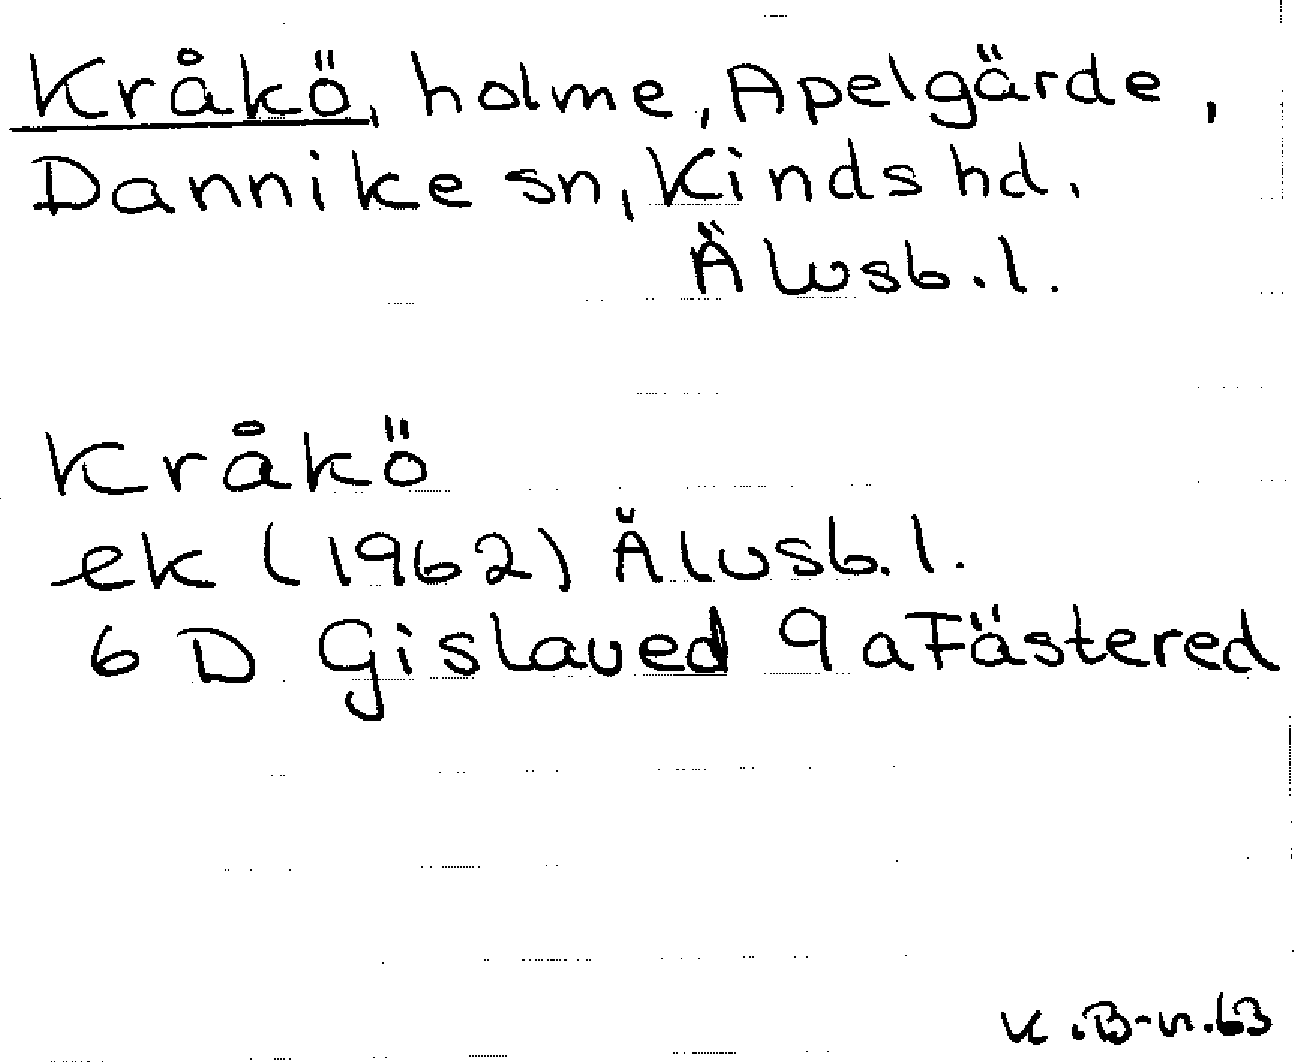 Kråkö, holme, Apelgärde,
Dannike sn, Kinds hd.
Älvsb. l.
Kråkö
ek (1962) Älvsb. l.
6 D Gislaved 9 a Fästered
K. B-n. 63